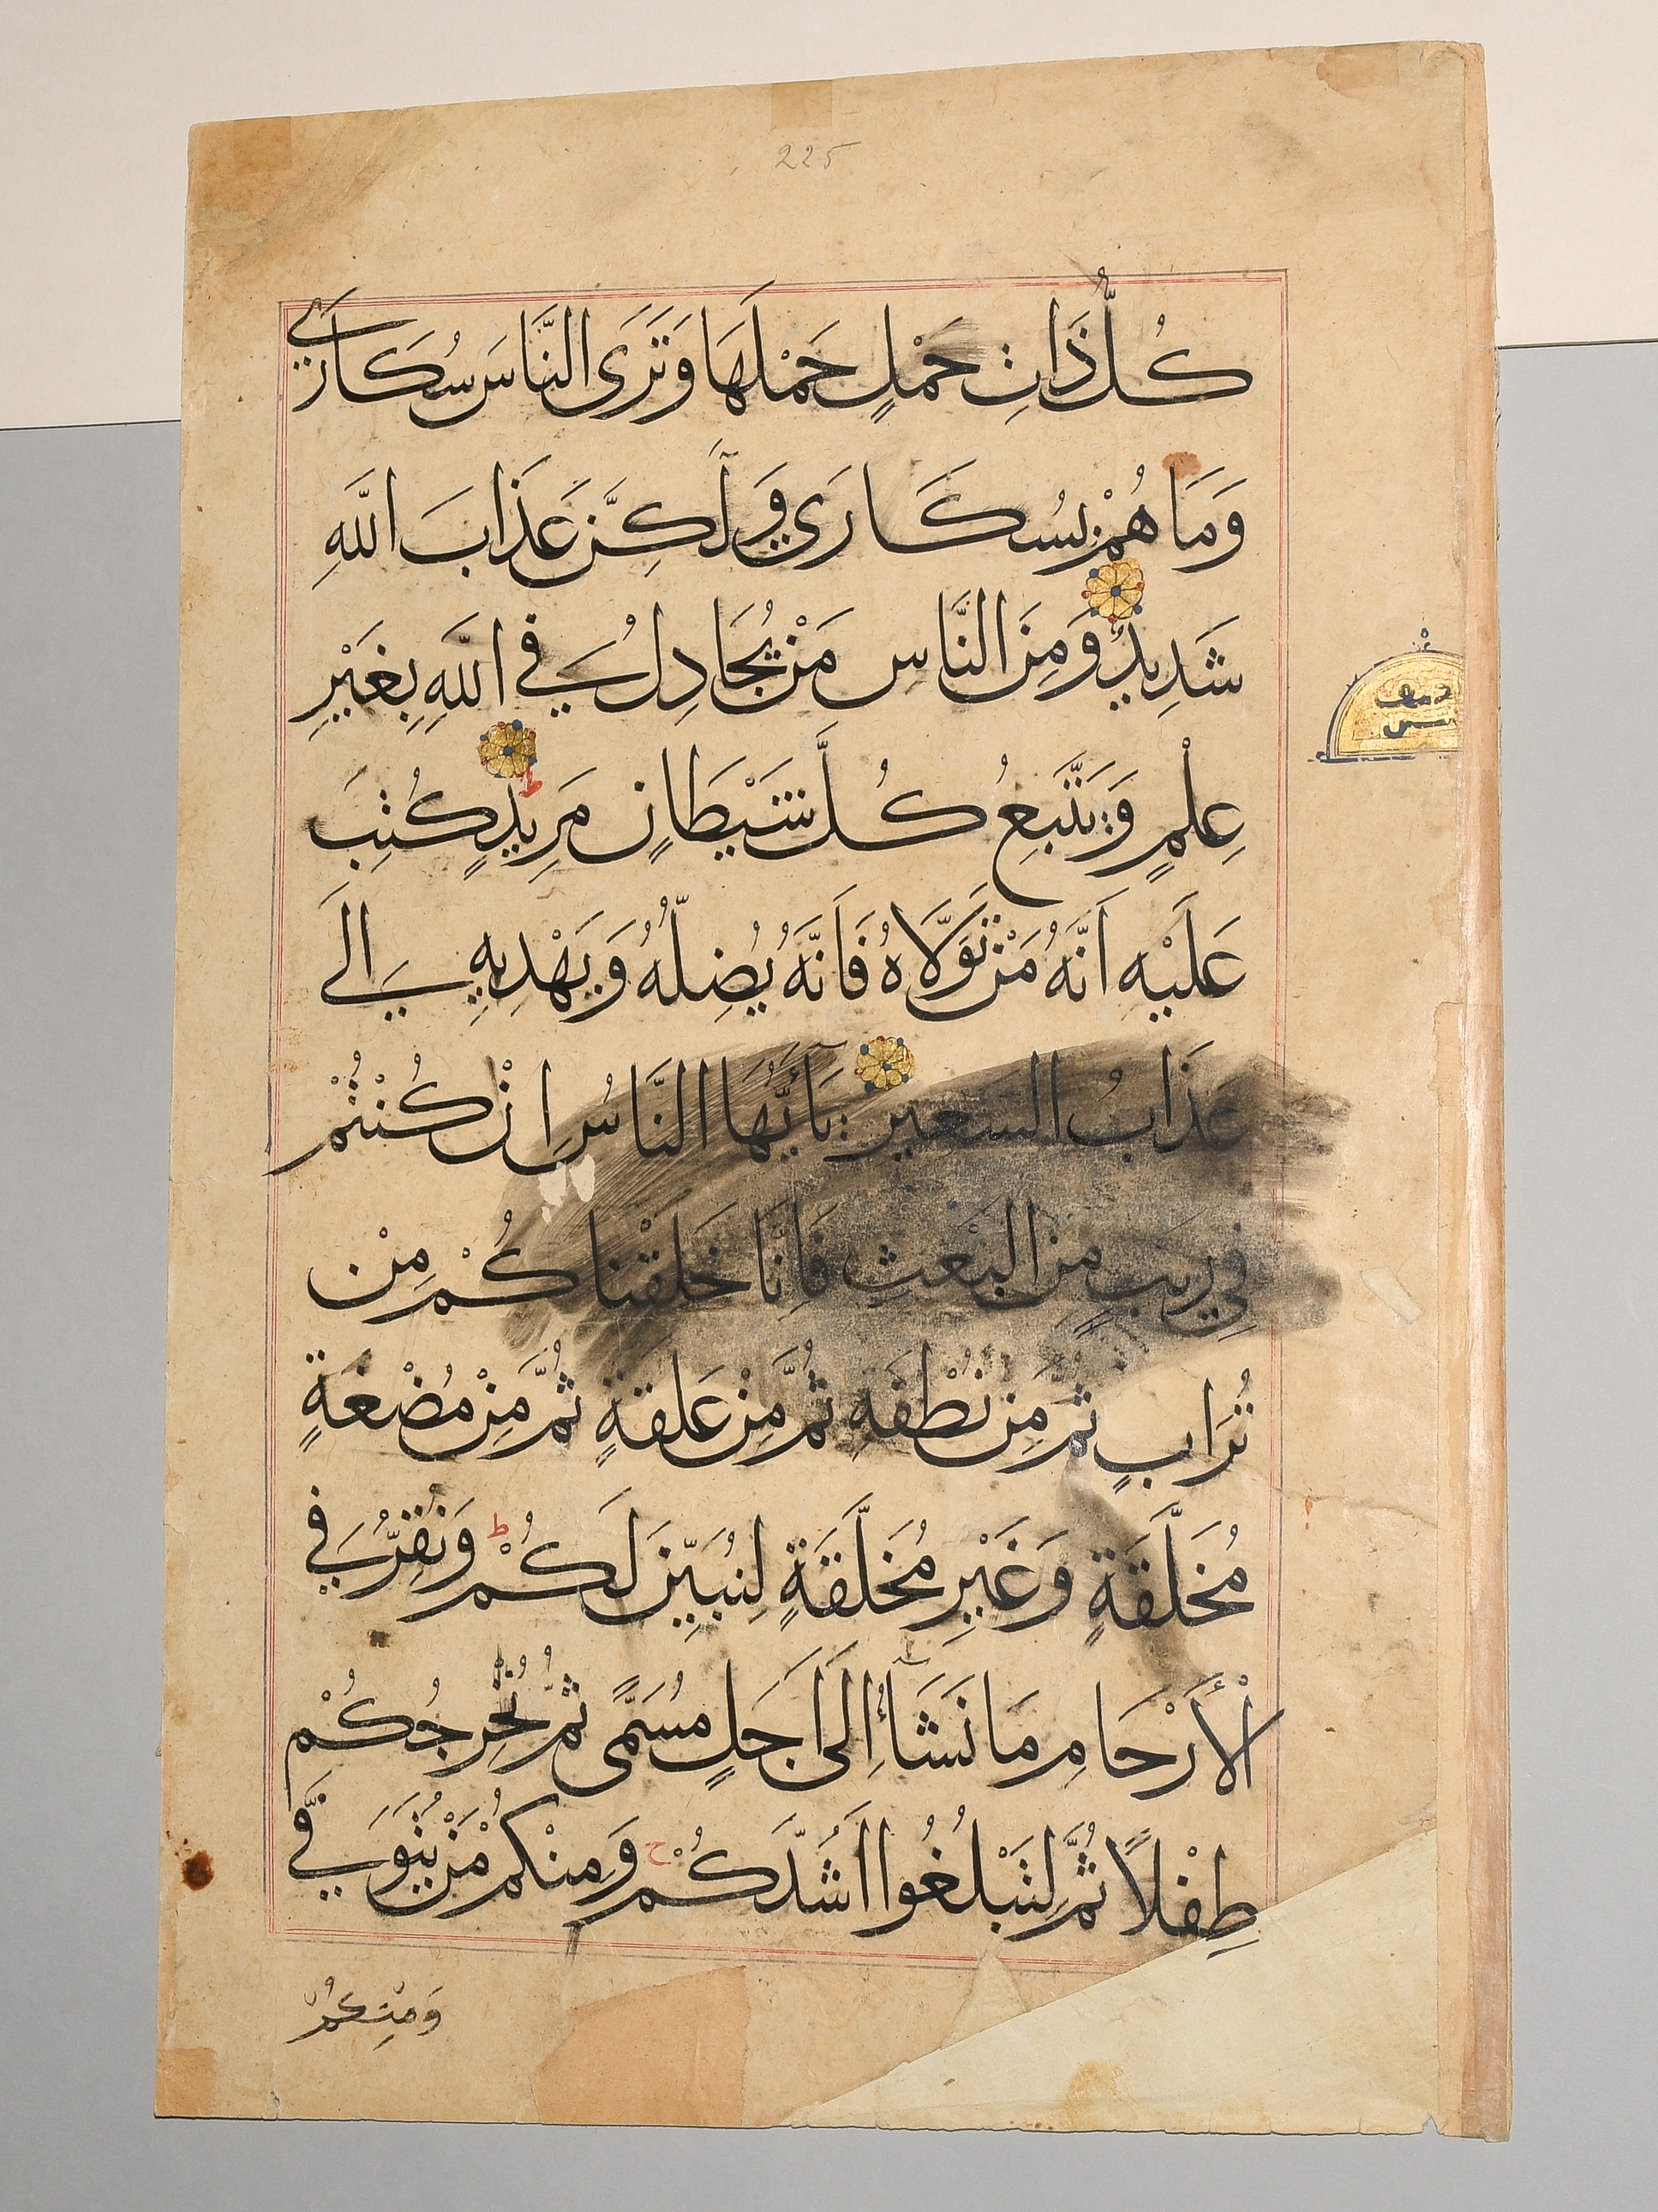 225
كُلُّ ذَاتِ حَمْلٍ حَمْلَهَا وَتَرَى النَّاسَ سُكَارَى
وَمَا هُمْ بِسُكَارَى وَلَكِنَّ عَذَابَ اللَّهِ
شَدِيدٌ وَمِنَ النَّاسِ مَنْ يُجَادِلُ فِي اللَّهِ بِغَيْرِ
عِلْمٍ وَيَتَّبِعُ كُلَّ شَيْطَانٍ مَرِيدٍ كُتِبَ
عَلَيْهِ اَنَّهُ مَنْ تَوَلَّاهُ فَاَنَّهُ يُضِلُّهُ وَيَهْدِيهِ اِلَى
عَذَابِ السَّعِيرِ يَآ أَيُّهَا النَّاسُ اِنْ كُنْتُمْ
فِي رَيْبٍ مِنَ الْبَعْثِ فَاِنَّا خَلَقْنَاكُمْ مِنْ
تُرَابٍ ثُمَّ مِنْ نُطْفَةٍ ثُمَّ مِنْ عَلَقَةٍ ثُمَّ مِنْ مُضْغَةٍ
مُخَلَّقَةٍ وَغَيْرِ مُخَلَّقَةٍ لِنُبَيِّنَ لَكُمْ ط وَنُقِرُّ فِي
الْأَرْحَامِ مَا نَشَآءُ إِلَى اَجَلٍ مُسَمًّى ثُمَّ نُخْرِجُكُمْ
طِفْلًا ثُمَّ لِتَبْلُغُوا اَشُدَّكُمْ ح وَمِنْكُمْ مَنْ يُتَوَفَّى
وَمِنْكُمْ